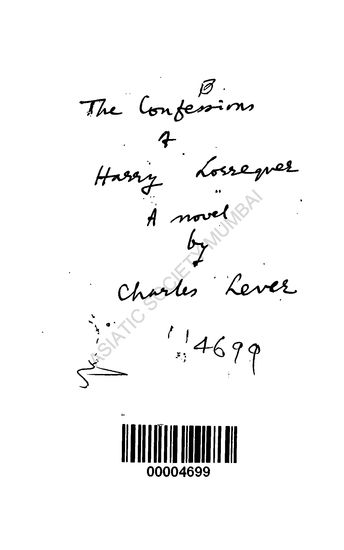 B.
The Confessions
of
Harry Lorrequer
A novel
by
Charles Lever
4699
ASIATIC SOCIETY MUMBAI
00004699